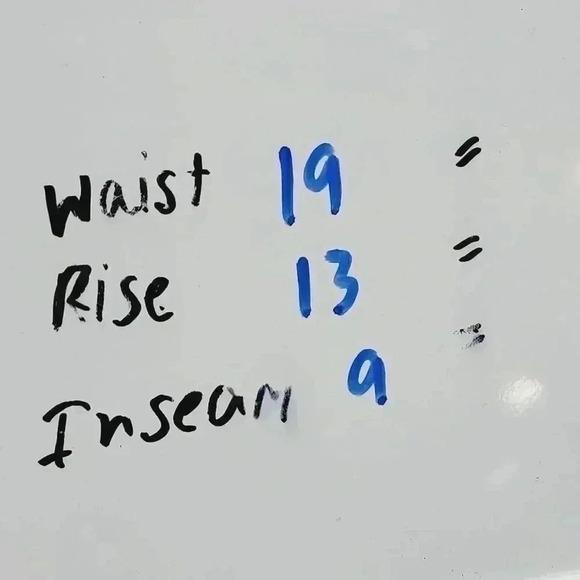 Waist 19 "
Rise 13 "
Inseam 9 "